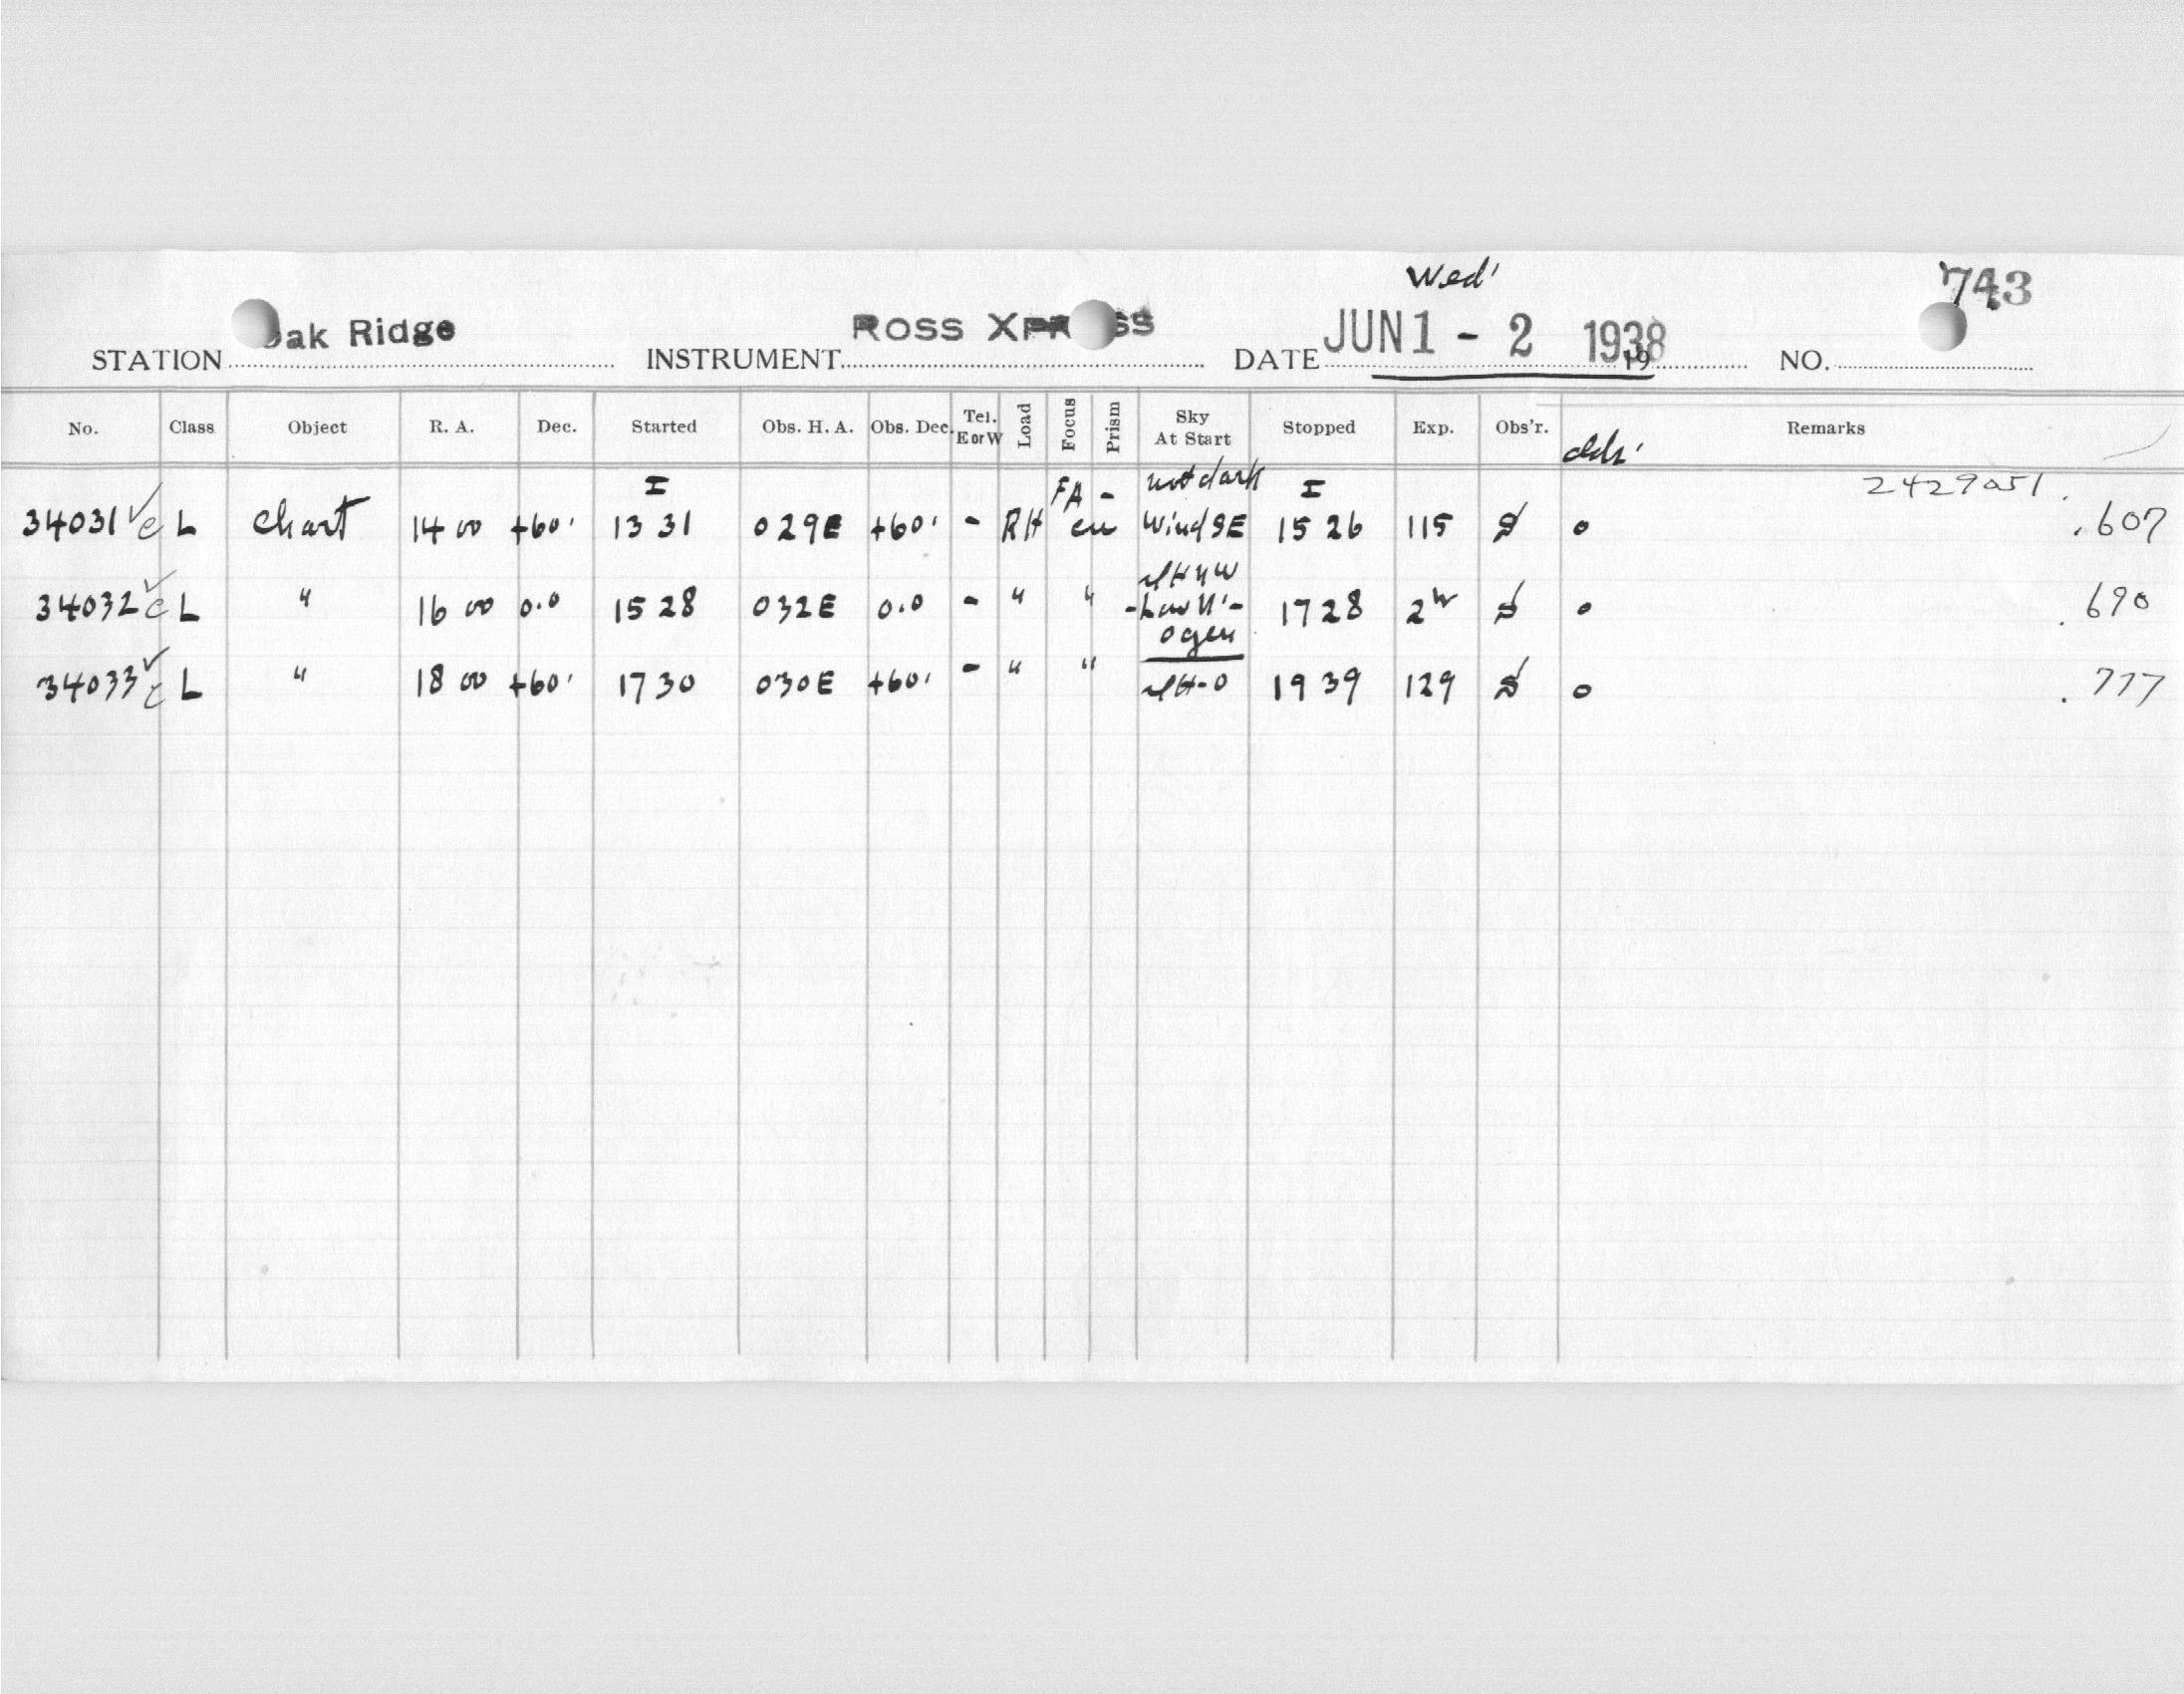 Wed'
743
STATION Oak Ridge INSTRUMENT ROSS XPRESS DATE JUN 1 - 2 1938 19 NO.
No. Class Object R. A. Dec. Started Obs. H. A. Obs. Dec. Tel. E or W Load Focus Prism Sky At Start Stopped Exp. Obs'r. Remarks
I FA - not dark I 2429051.
34031 ✓ c L Chart 14 00 +60' 13 31 0 29E +60' - RH Wind SE 15 26 115 0 .607
34032 ✓ c L " 16 00 0.0 15 28 0 32E 0.0 - " " 17 28 2h 0 .690
34033 ✓ c L " 18 00 +60' 17 30 0 30E +60' - " " 19 39 129 0 .777